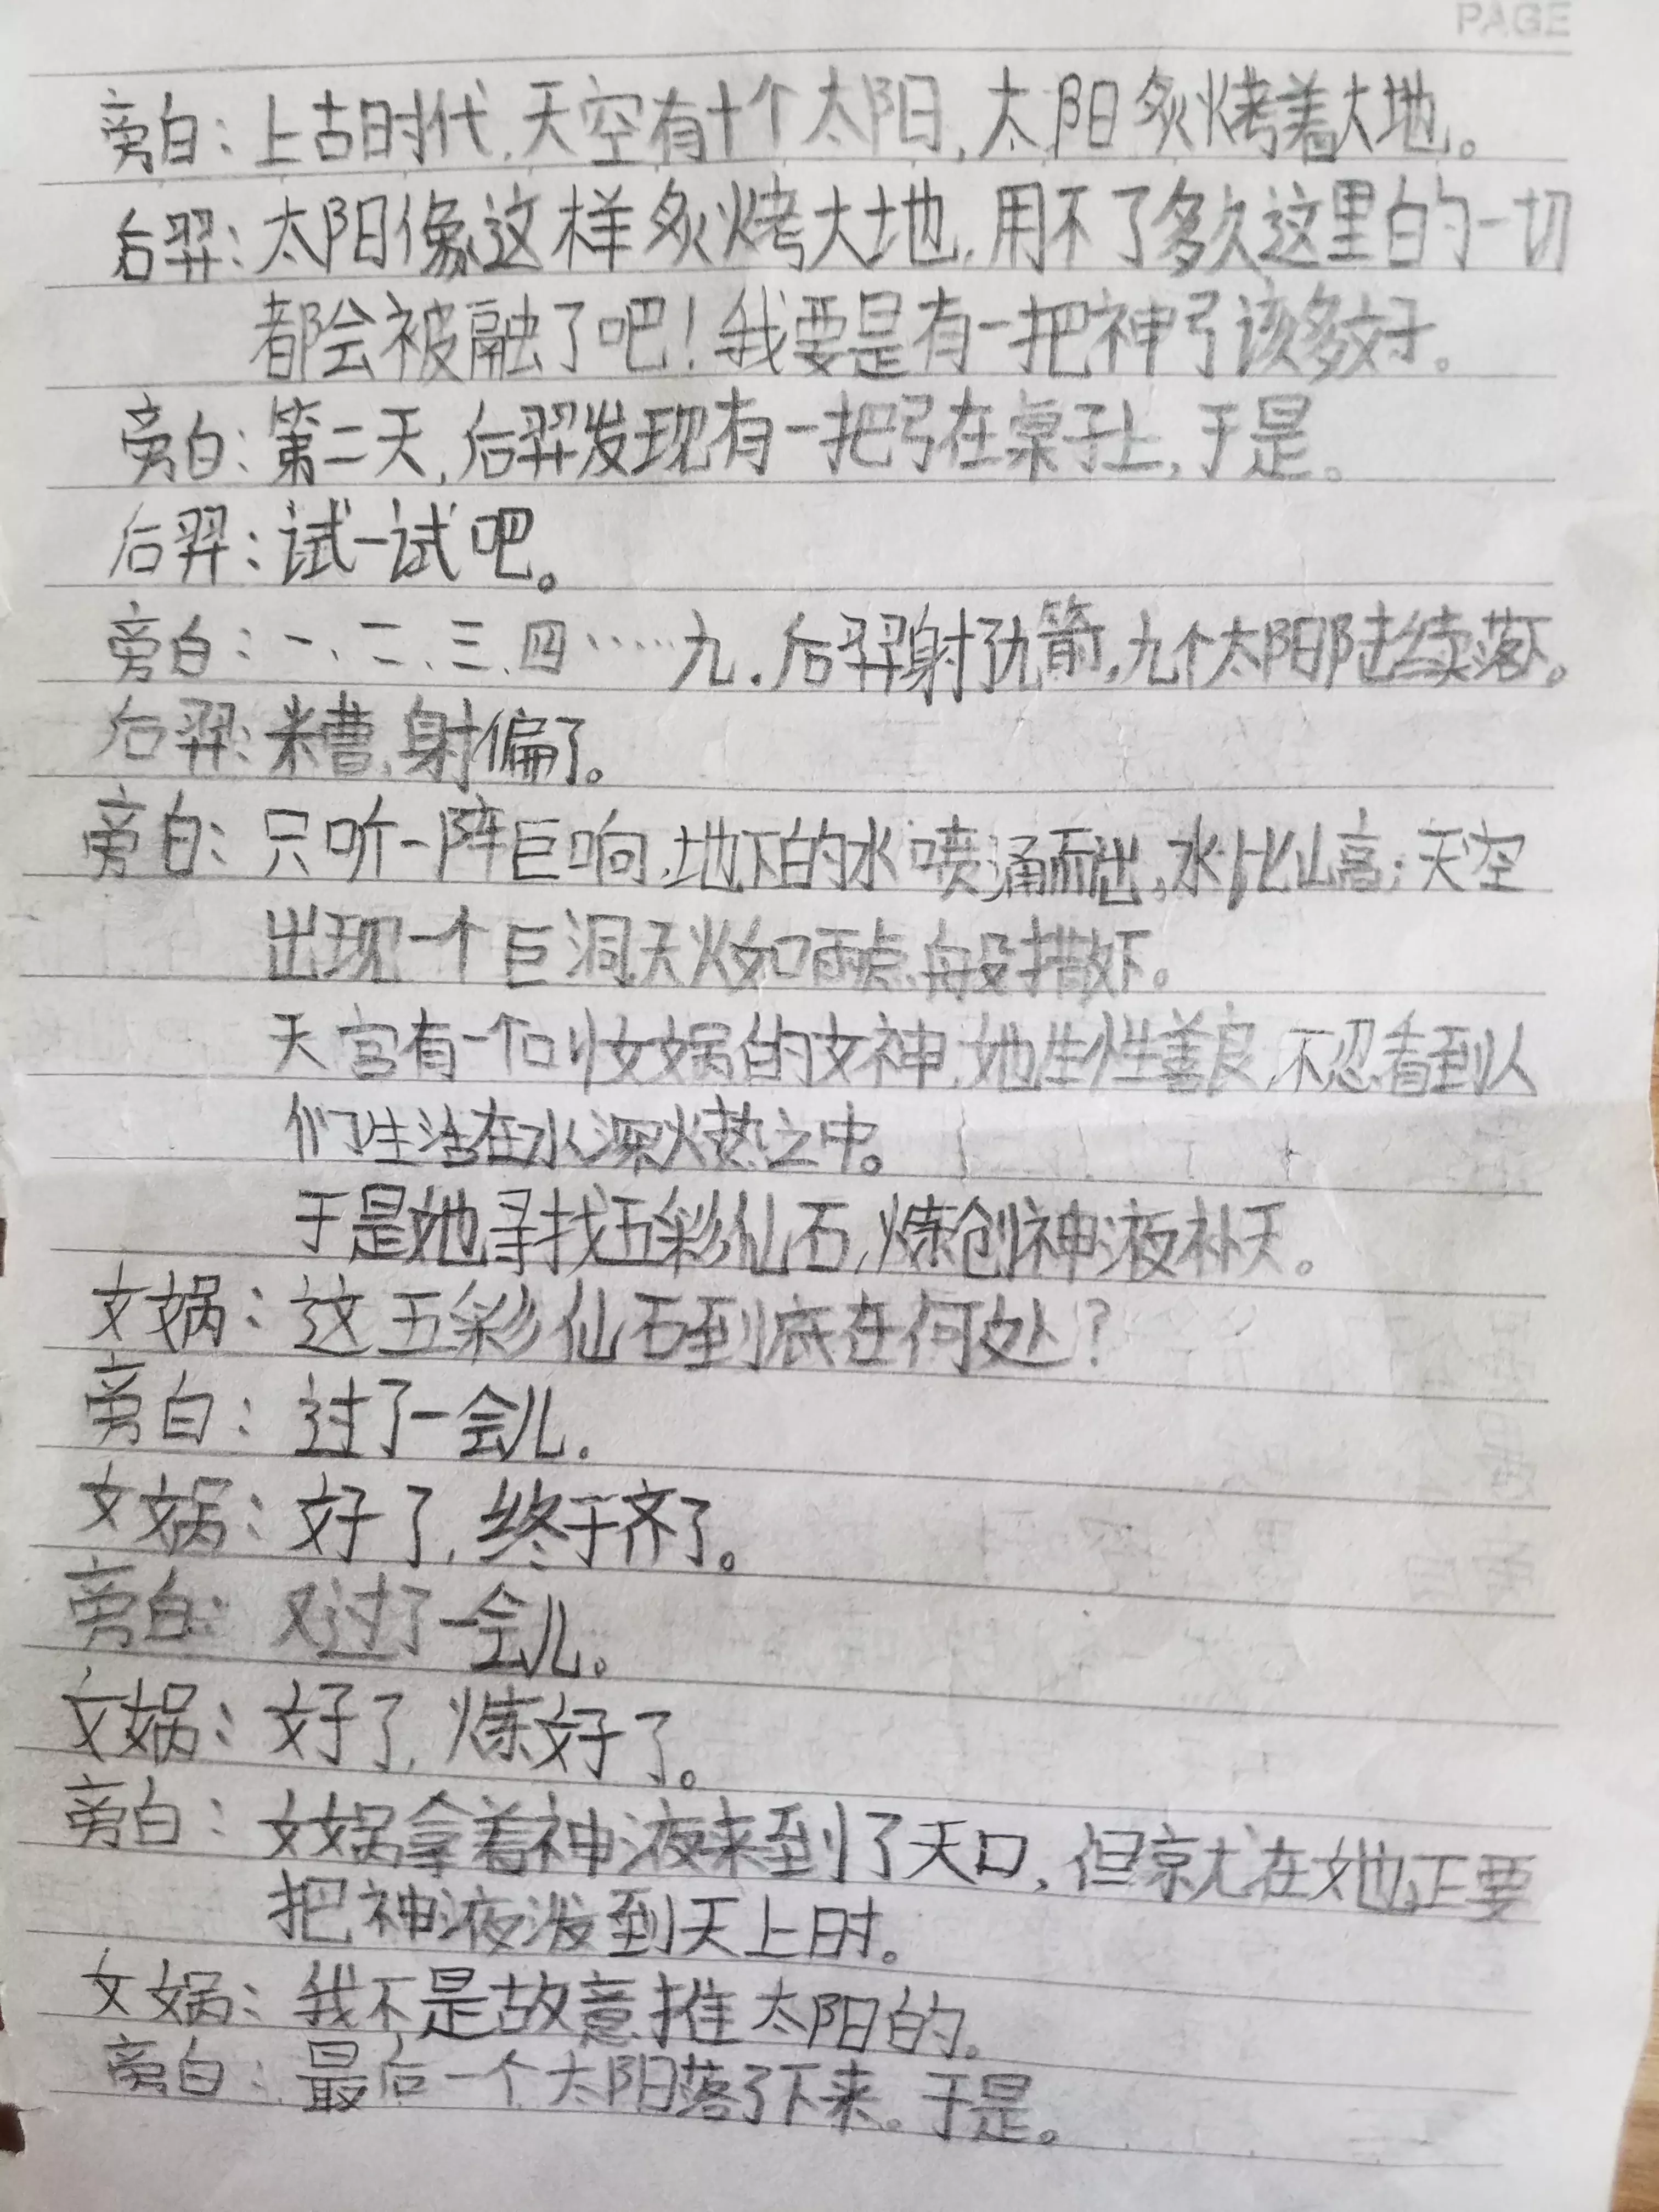 PAGE
旁白：上古时代，天空有十个太阳，太阳炙烤着大地。
后羿：太阳像这样炙烤大地，用不了多久这里的一切
都会被融了吧！我要是有一把神弓该多好。
旁白：第二天，后羿发现有一把弓在桌子上，于是。
后羿：试一试吧。
旁白：一、二、三、四……九．后羿射了九箭，九个太阳陆续落下。
后羿：糟，射偏了。
旁白：只听一阵巨响，地下的水喷涌而出，水比山高；天空
出现一个巨洞，天火如雨点般撒下。
天宫有一个叫女娲的女神，她生性善良，不忍看到人
们生活在水深火热之中。
于是她寻找五彩仙石，炼创神液补天。
女娲：这五彩仙石到底在何处？
旁白：过了一会儿．
女娲：好了，终于齐了。
旁白：又过了一会儿。
女娲：好了，炼好了。
旁白：女娲拿着神液来到了天口，但就在她正要
把神液泼到天上时。
女娲：我不是故意推太阳的。
旁白：最后一个太阳落了下来。于是。